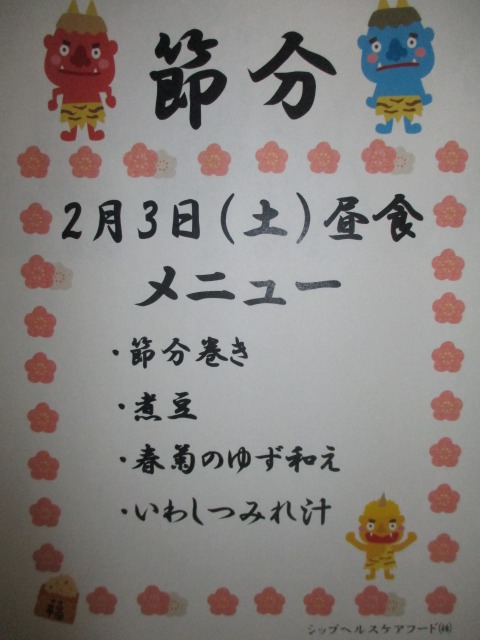 節分
2月3日（土）昼食
メニュー
・節分巻き
・煮豆
・春菊のゆず和え
・いわしつみれ汁
福
シップヘルスケアフード㈱